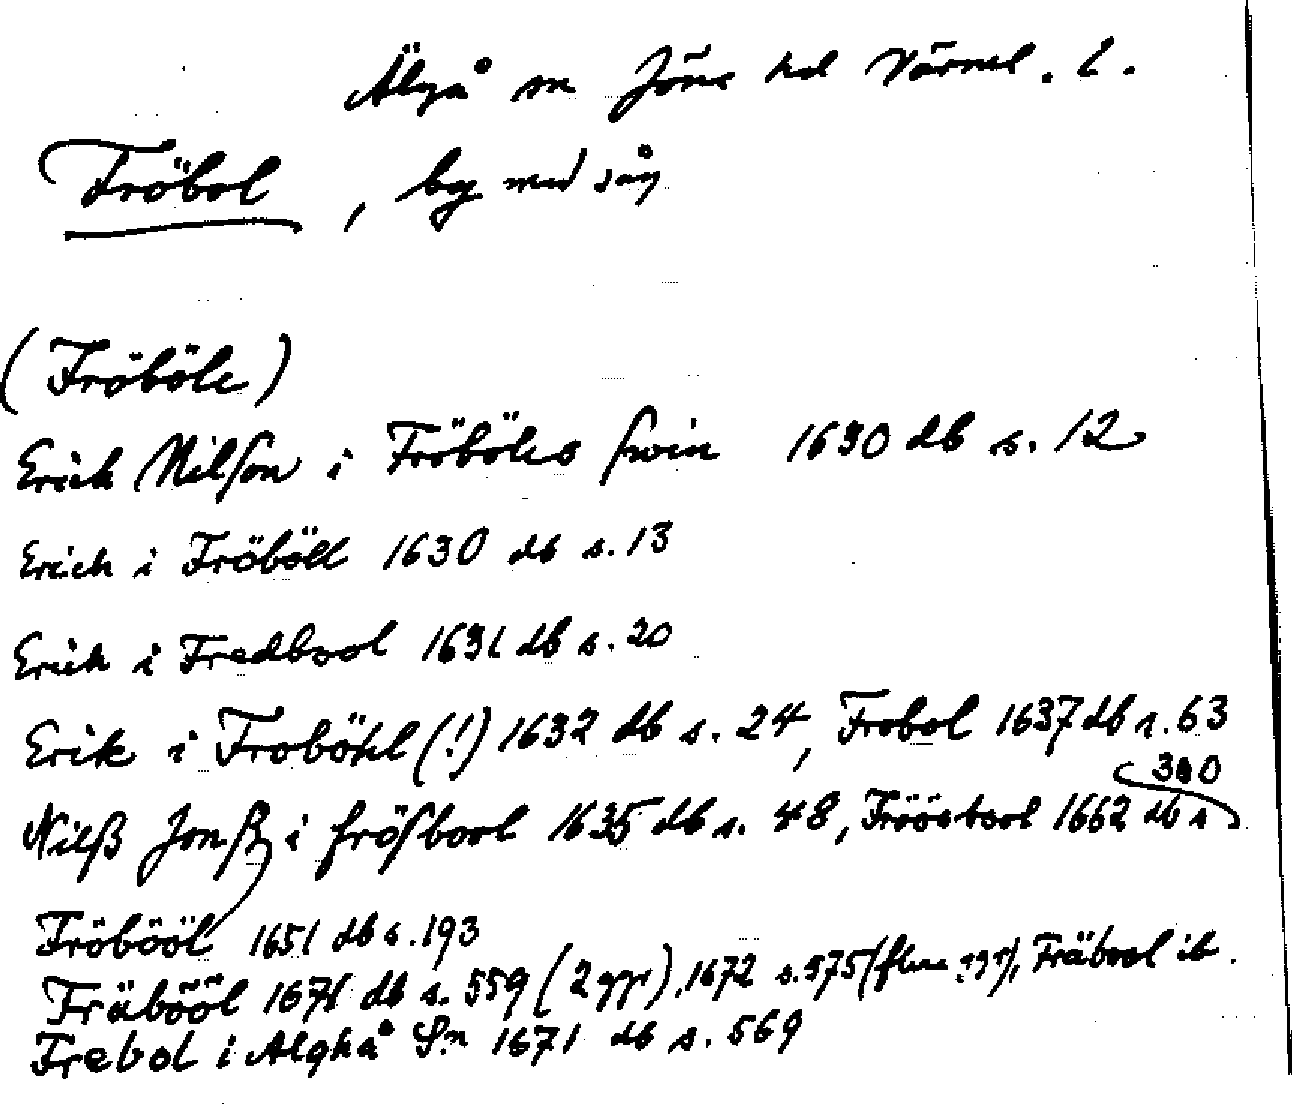 Älgå sn Jöss hd Värml. l.
Fröbol, by med såg
(Fröböle)
Erich Nilsson i Fröböles hwin 1630 db s. 12
Erich i Fröböll 1630 db s. 13
Erich i Fredbool 1631 db s. 20
Erik i Froböhl (!) 1632 db s. 24, Frobol 1637 db s. 63
Nilß Jonß i frösbool 1635 db s. 48, Fröösbool 1662 db s 300
Fröbööl 1651 db s. 193
Fräbööl 1671 db s. 559 (2 ggr), 1672 s. 575 (flera ggr), Fräbool ib.
Frebol i Alghå Sn 1671 db s. 569